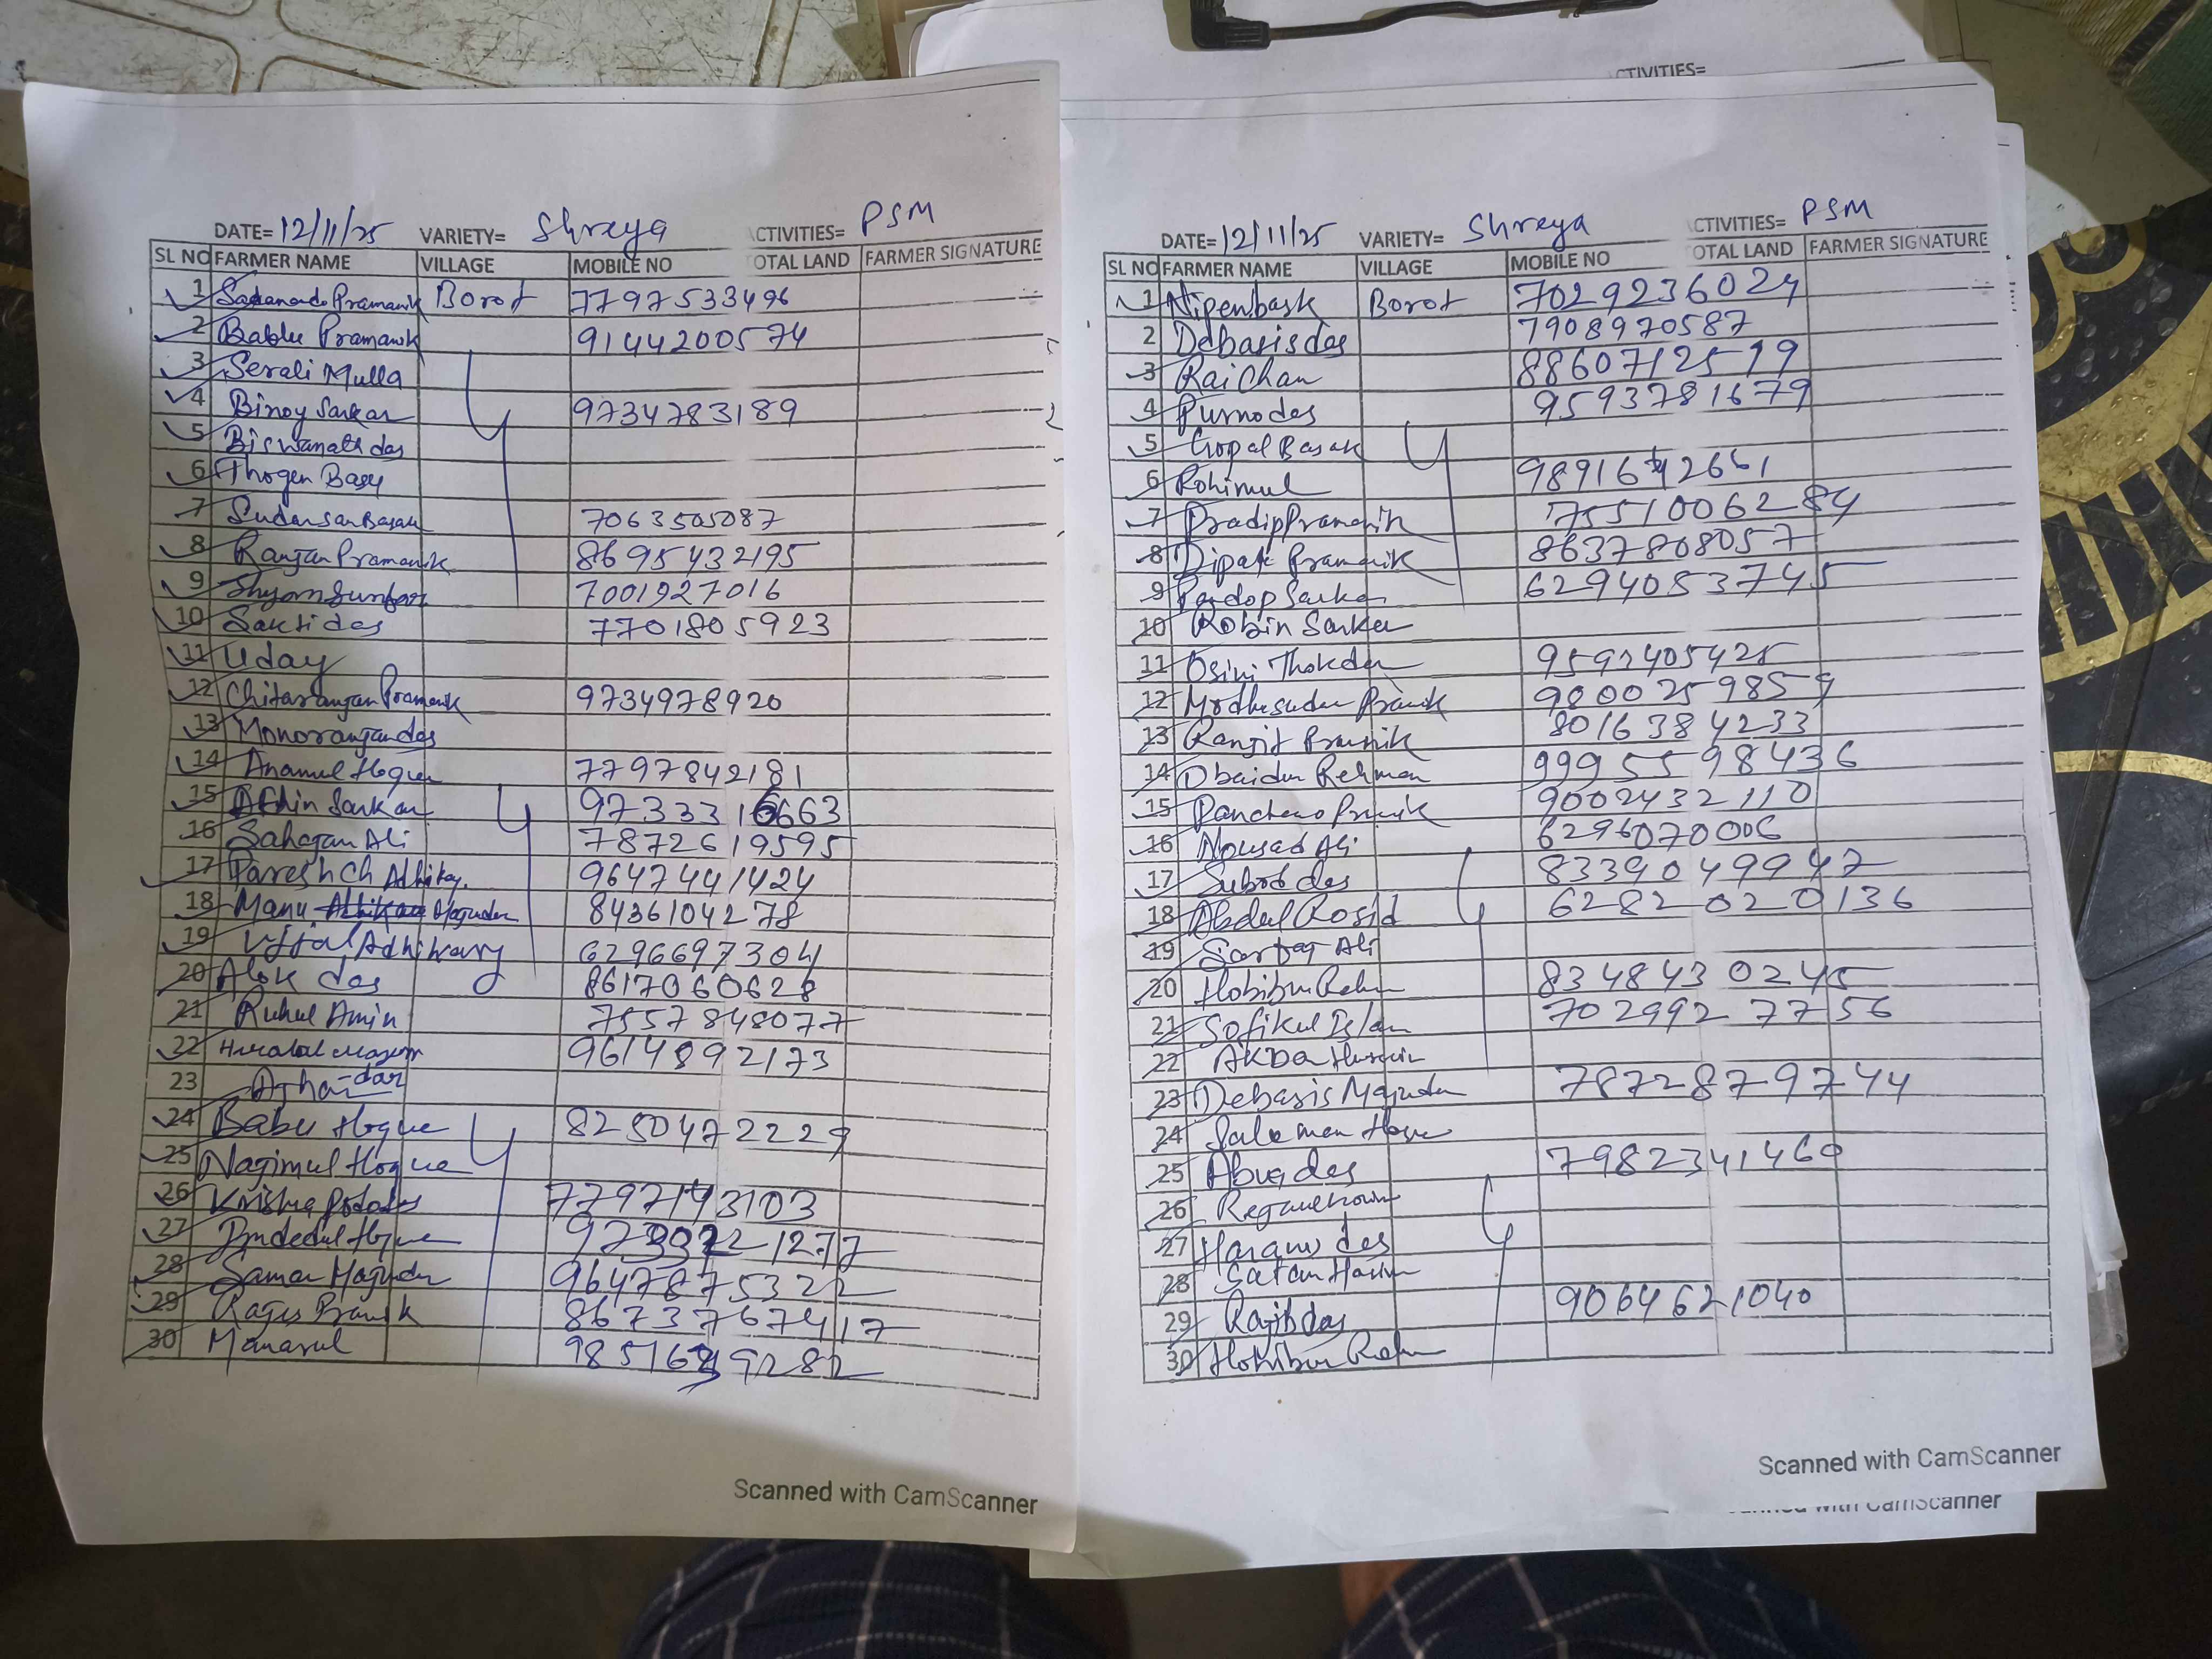 CTIVITIES=
DATE= 12/11/25 VARIETY= Shreya CTIVITIES= PSM
SL NO FARMER NAME VILLAGE MOBILE NO OTAL LAND FARMER SIGNATURE
1 Sadanando Pramanik Borot 7797533496
2 Bablu Pramanik 9144200574
3 Serali Mulla
4 Binoy Sarkar 9734783189
5 Biswanath das
6 Thogen Basy
7 Sudarsan Basak 7063505087
8 Ranjan Pramanik 8695432195
9 Shyam Sundar 7001927016
10 Sakti das 7701805923
11 Uday
12 Chitaranjan Pramanik 9734978920
13 Monoranjan das
14 Anamul Hoque 7797842181
15 Sarkar 9733316663
16 Sahajan Ali 7872619595
17 Paresh Ch Adhikay. 9647441424
18 Manu Majumder 8436104278
19 Ujjal Adhikary 6296697304
20 Alok das 8617060628
21 Ruhul Amin 7557848077
22 9614892173
23
24 Babu Hoque 8250472229
25 Najimul Hoque
26 Krishna 7797143103
27 Hoque
28 Samar Majumder 9647875322
29 8673767417
30 Manarul
Scanned with CamScanner
DATE= 12/11/25 VARIETY= Shreya CTIVITIES= PSM
SL NO FARMER NAME VILLAGE MOBILE NO OTAL LAND FARMER SIGNATURE
1 Nipen bask Borot 7029236024
2 Debasis das 7908970587
3 Rai Chan 8860712519
4 Purno das 9593781679
5 Gopal Basak
6 Rohimul
7 Pradip Pramanik 7551006284
8 Dipak Pramanik 8637808057
9 Sarkar 6294083745
10 Robin Sarker
11 Osini Thokdar
12 9800259859
13 Ranjit 8016384233
14 Obaidur Rehman 9995598436
15 9002432110
16 Nousad Ali 6296070006
17 Subod das 8339049947
18 Abdul Rosid 6282020136
19 Ali
20 Hobibur Rahm 8348430245
21 Sofikul Islam 7029927756
22
23 Debasis Majumder 7872879744
24
25 das 7982341460
26
27 das
28
29 Rajib das 9064621040
30 Hobibur Rahm
Scanned with CamScanner
with CamScanner